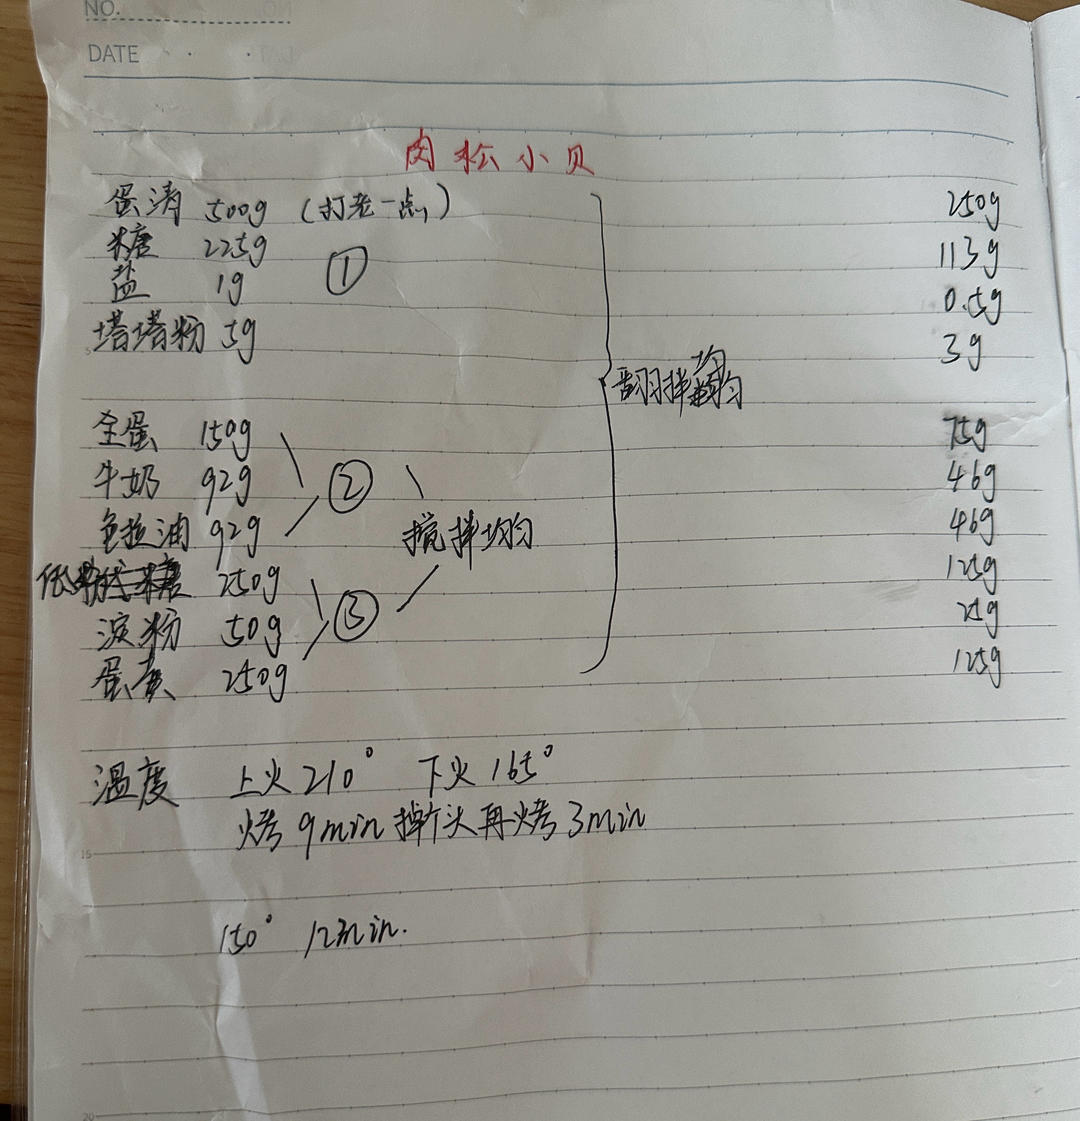 NO.
DATE
肉松小贝
蛋清 500g (打老一点) 250g
糖 225g ① 113g
盐 1g 0.5g
塔塔粉 5g 3g
翻拌均匀
全蛋 150g 75g
牛奶 92g ② 46g
色拉油 92g 搅拌均匀 46g
低粉 250g 125g
淀粉 50g ③ 25g
蛋黄 250g 125g
温度 上火210° 下火165°
烤9min掉个头再烤3min
15
150° 12min.
20